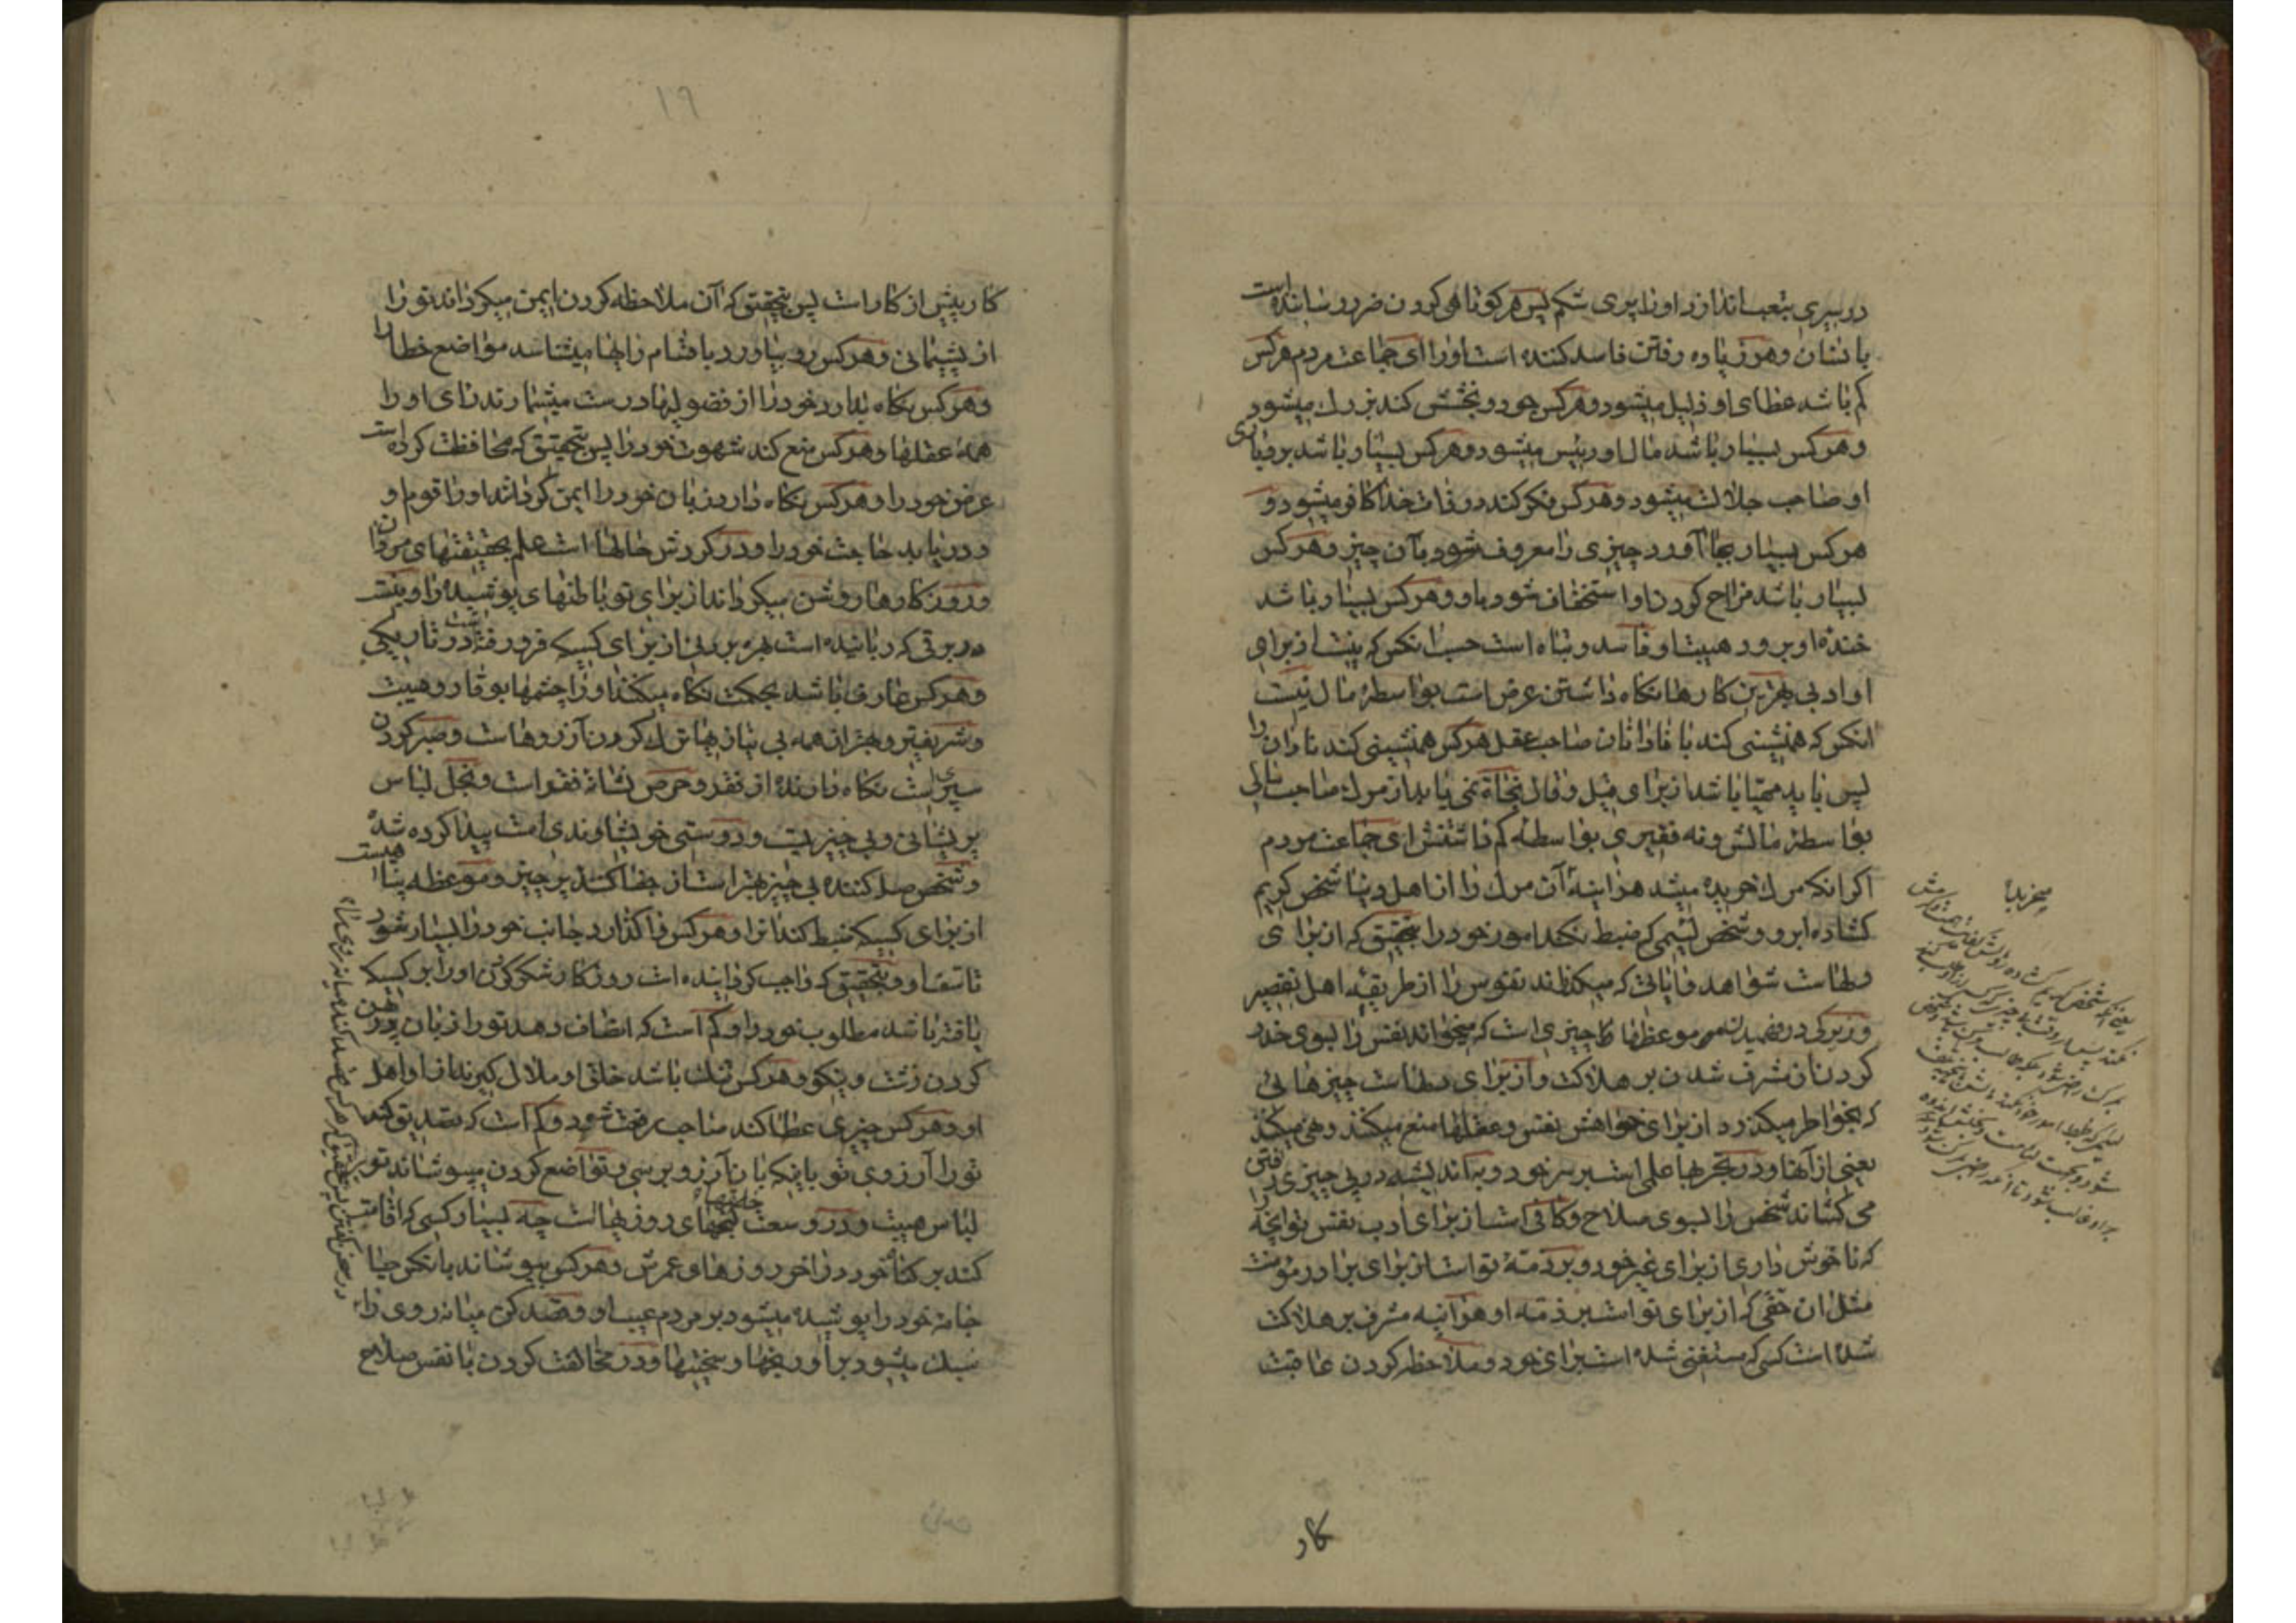 در سیری بتعب اندازد او را پری شکم پس هر کوتاهی کردن ضرر رساننده است
با نشان و هر زیاده رفتن فاسد کننده است او را ای جماعت مردم هر کس
کم باشد عطای او ذلیل میشود و هر کس جود و بخشش کند بزرك میشود
و هر کس بسیار باشد مال او رئیس میشود و هر کس بسیار باشد بردباری
او صاحب جلالت میشود و هر کس فکر کند در ذات خدا کافر میشود و
هر کس بسیار بجا آورد چیزی را معروف شود بآن چیز و هر کس
بسیار باشد مزاح کردن او استخفاف شود باو و هر کس بسیار باشد
خنده او برود هیبت او فاسد و تباه است حسب آنکس که نیست از برای
او ادبی بهترین کارها نگاه داشتن عرض است بواسطهٔ مال نیست
آنکس که همنشینی کند با نادانان صاحب عقل هر کس همنشینی کند نادان را
پس باید مهیا باشد از برای قیل و قال نجاة نمی یابد از مرك صاحب مالی
بواسطهٔ مالش و نه فقیری بواسطه کم داشتنش ای جماعت مردم
اگر آنکه مرك خریده میشد هر آینه آن مرك را از اهل دنیا شخص کریم
گشاده ابرو و شخص لئیمی که ضبط نکند امور خود را بتحقیق که از برای
دلهاست شواهد و آیاتی که میکذراند نفوس را از طریقهٔ اهل تقصیر
و زیرکی در فهمیدن موعظها چیزی است که میخواند نفس را بسوی حذر
کردن از مشرف شدن بر هلاکت و از برای دلهاست چیزهائی
که بخواطر میکذرد از برای خواهش نفس و عقلها منع میکند و نهی میکند
یعنی از آنها و در تجربها علمی است بر سر خود و به اندیشه در پی چیزی رفتن
می کشاند شخص را بسوی صلاح و کافی است از برای ادب نفس تو آنچه
که ناخوش داری از برای غیر خود و بر ذمهٔ تو است از برای برادر مؤمنت
مثل آن حقی که از برای تو است بر ذمه او هر آینه مشرف بر هلاکت
شده است کسی که مستغنی شده است برای خود و ملاحظه کردن عاقبت
میخریدند
کار
۱۹
کار پیش از کار است پس بتحقیق که آن ملاحظه کردن ایمن میکرداند تو را
از پشیمانی و هر کس رو بیاورد باقسام رایها میشناسد مواضع خطا را
و هر کس نکاه بدارد خود را از فضولیها درست میشمارند رای او را
همه عقلها و هر کس منع کند شهوت خود را پس بتحقیق که محافظت کرده است
عرض خود را و هر کس نکاه دارد زبان خود را ایمن کرداند او را قوم او
و دریابد حاجت خود را و در کردش حالها است علم بحقیقتهای مردان
و روزکارها روشن میکرداند از برای تو باطنهای پوشیده را و نیست
در برقی که رباینده است بهره بردنی از برای کسیکه فرو رفته است در تاریکی
و هر کس عارف باشد بحکمت نکاه میکند او را چشمها بوقار و هیبت
و شریفتر و بهتر از همه بی نیازیها ترك کردن آرزوهاست و صبر کردن
سپریست نکاه دارنده از فقر و حرص نشانهٔ فقر است و بخل لباس
پریشانی و بی چیزیست و دوستی خویشاوندی است پیدا کرده شده
و شخص صله کننده بی چیز بهتر است از جفا کننده پر چیز و موعظه پناهیست
از برای کسیکه ضبط کند آنرا و هر کس واگذارد جانب خود را بسیار شود
تاسف او و بتحقیق که واجب کردانیده است روزکار شکر کردن او را بر کسیکه
یافته باشد مطلوب خود را و کم است که انصاف دهد تو را زبان در پهن
کردن زشت و نیکو و هر کس تنك باشد خلق او ملال کیرند از او اهل
او و هر کس چیزی عطا کند صاحب رفعت شود و کم است که تصدیق کند
تو را آرزوی تو باینکه بآن آرزو برسی و تواضع کردن میپوشاند تو را
لباس هیبت و در وسعت خلقها کنجهای روزیهاست چه بسیار کسی که اقامت
کند بر کناه خود در آخر روزهای عمرش و هر کس بپوشاند بآنکس حیا
جامهٔ خود را پوشیده میشود بر مردم عیب او و قصد کن میانه روی را
سبك میشود بر او رنجها و سختیها و در مخالفت کردن با نفس صلاح
در سخن گفتن پس بتحقیق که هر که قصد کند میانه روی را